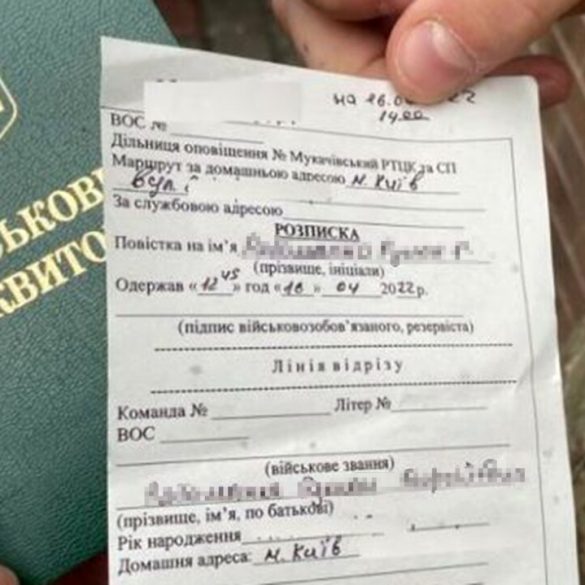 на 26.0 22
14.00
ЬКОВИ
КВИТО
ВОС №
Дільниця оповіщення № Мукачівський РТЦК та СП
Маршрут за домашньою адресою м. Київ
Вул
За службовою адресою
РОЗПИСКА
Повістка на ім'я
(прізвище, ініціали)
Одержав «12 45» год «16» 04 2022 р.
(підпис військовозобов'язаного, резервіста)
Лінія відрізу
Команда № Літер №
ВОС
(військове звання)
(прізвище, ім'я, по батькові)
Рік народження
Домашня адреса: м. Київ